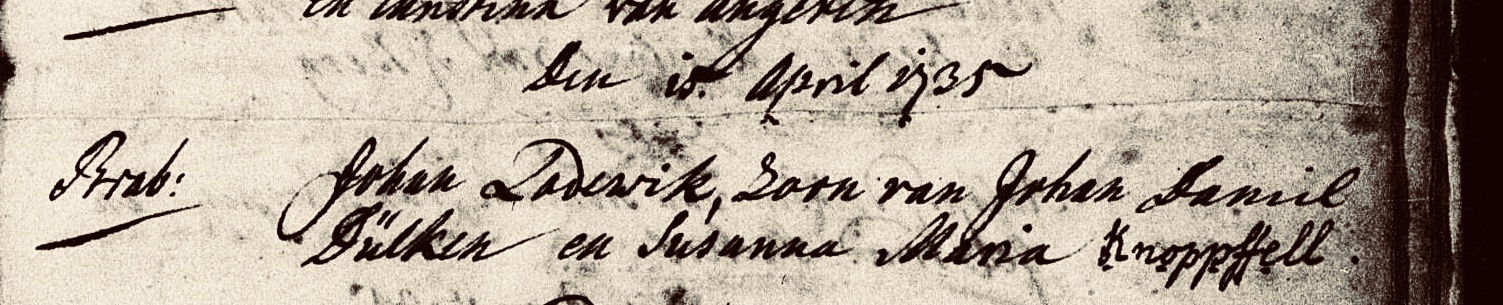 en Landrina van Angeren
Den 15. April 1735
Brab: Johan Lodewik, Zoon van Johan Daniel
Dülken en Susanna Maria Knoppffell.